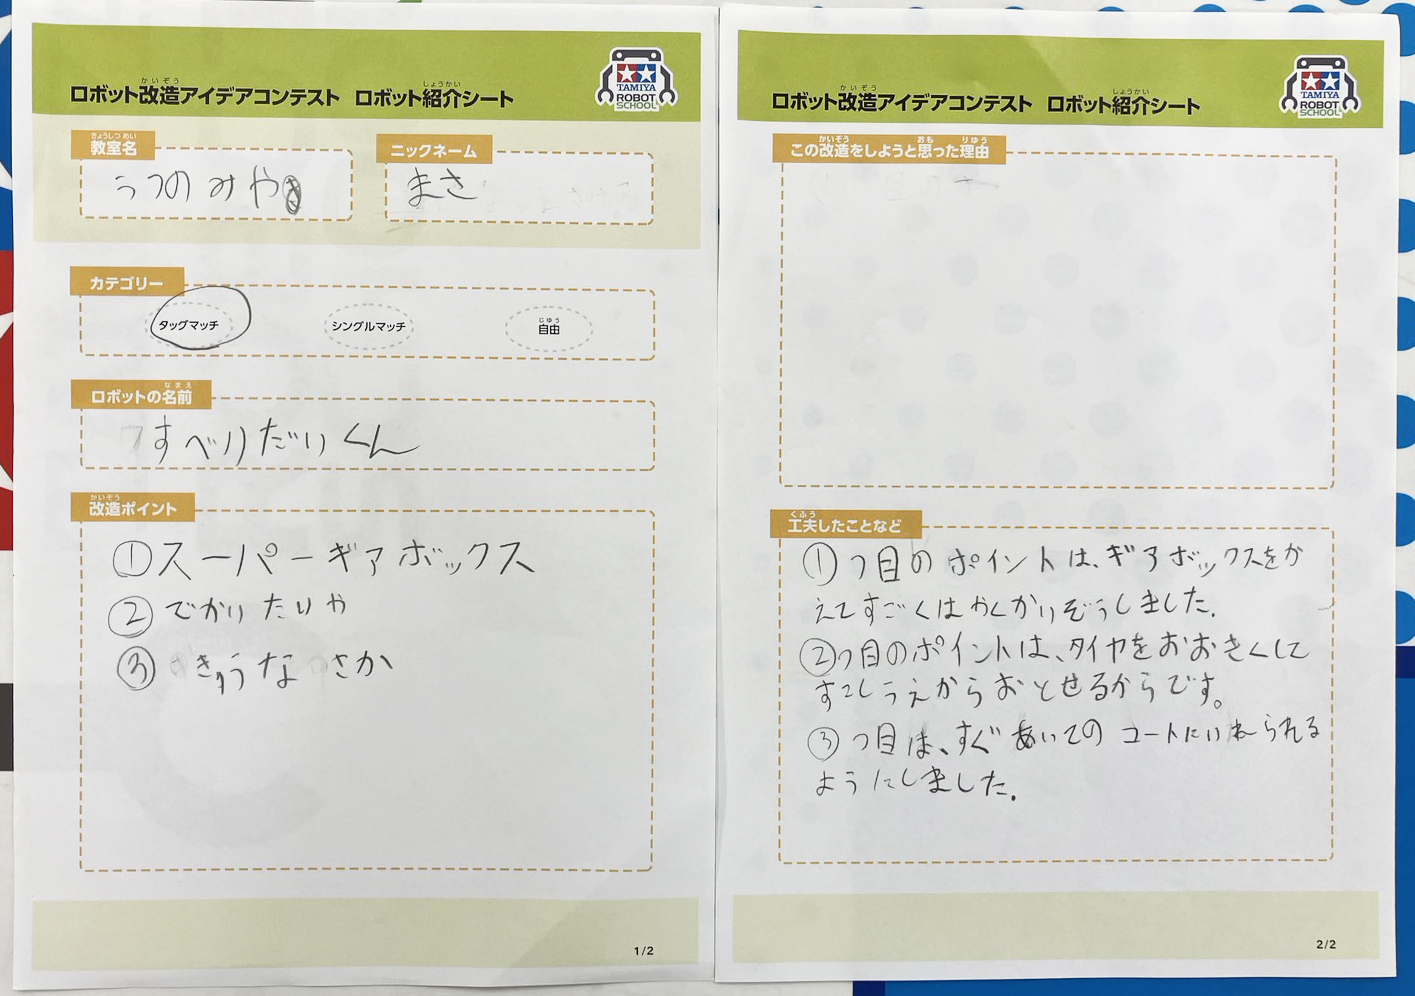 ロボット改造アイデアコンテスト ロボット紹介シート
かいぞう しょうかい
TAMIYA
ROBOT
SCHOOL
きょうしつ めい
教室名
うつのみや
ニックネーム
まさ
カテゴリー
タッグマッチ
シングルマッチ
じゆう
自由
なまえ
ロボットの名前
すべりだいくん
かいぞう
改造ポイント
①スーパーギアボックス
②でかいたいや
③きゅうなさか
1/2
ロボット改造アイデアコンテスト ロボット紹介シート
かいぞう しょうかい
TAMIYA
ROBOT
SCHOOL
かいぞう おも りゆう
この改造をしようと思った理由
くふう
工夫したことなど
①つ目のポイントは、ギアボックスをか
えてすごくはやくかいぞうしました。
②つ目のポイントは、タイヤをおおきくして
すこしうえからおとせるからです。
③つ目は、すぐあいてのコートにいれられる
ようにしました。
2/2